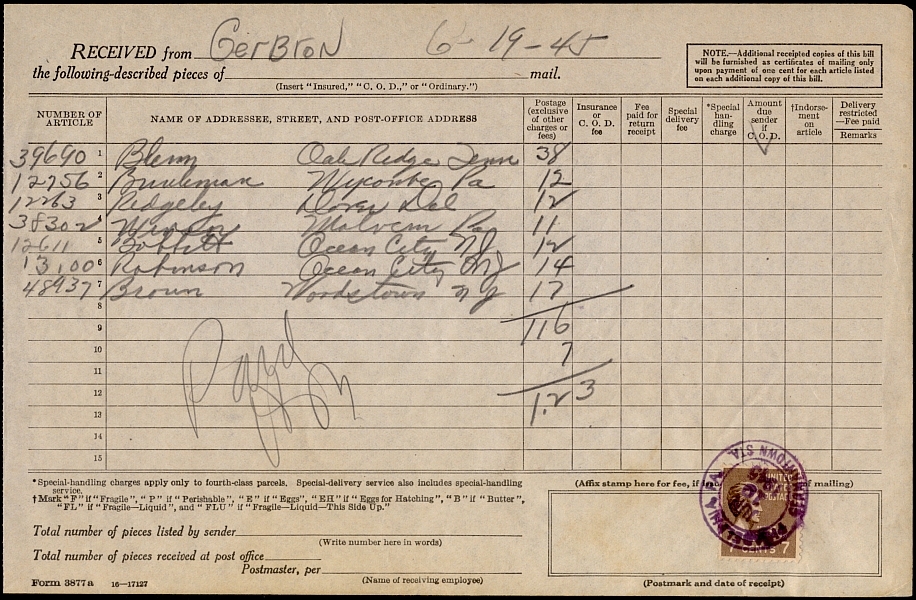 RECEIVED from GerBron 6-19-45
the following-described pieces of mail.
(Insert "Insured," "C. O. D.," or "Ordinary.")
NOTE.—Additional receipted copies of this bill
will be furnished as certificates of mailing only
upon payment of one cent for each article listed
on each additional copy of this bill.
NUMBER OF ARTICLE NAME OF ADDRESSEE, STREET, AND POST-OFFICE ADDRESS Postage (exclusive of other charges or fees) Insurance or C. O. D. fee Fee paid for return receipt Special delivery fee *Special handling charge Amount due sender if C. O. D. †Indorsement on article Delivery restricted —Fee paid Remarks
39690 1 Blenn Oak Ridge Tenn 38
12756 2 Wycombe Pa 12
12263 3 Ridgeley Dover Del 12
38302 4 Malvern Pa 11
12611 5 Bobbitt Ocean City NJ 12
13100 6 Robinson Ocean City NJ 14
48937 7 Brown Woodstown NJ 17
8
9 116
10 7
11
12 1.23
13
14
15
*Special-handling charges apply only to fourth-class parcels. Special-delivery service also includes special-handling
service.
†Mark "F" if "Fragile", "P" if "Perishable", "E" if "Eggs", "EH" if "Eggs for Hatching", "B" if "Butter",
"FL" if "Fragile—Liquid", and "FLU" if "Fragile—Liquid—This Side Up."
Total number of pieces listed by sender
(Write number here in words)
Total number of pieces received at post office
Postmaster, per
(Name of receiving employee)
Form 3877a 16—17127
(Affix stamp here for fee, if of mailing)
UNITED
POSTAGE
7 CENTS 7
(Postmark and date of receipt)